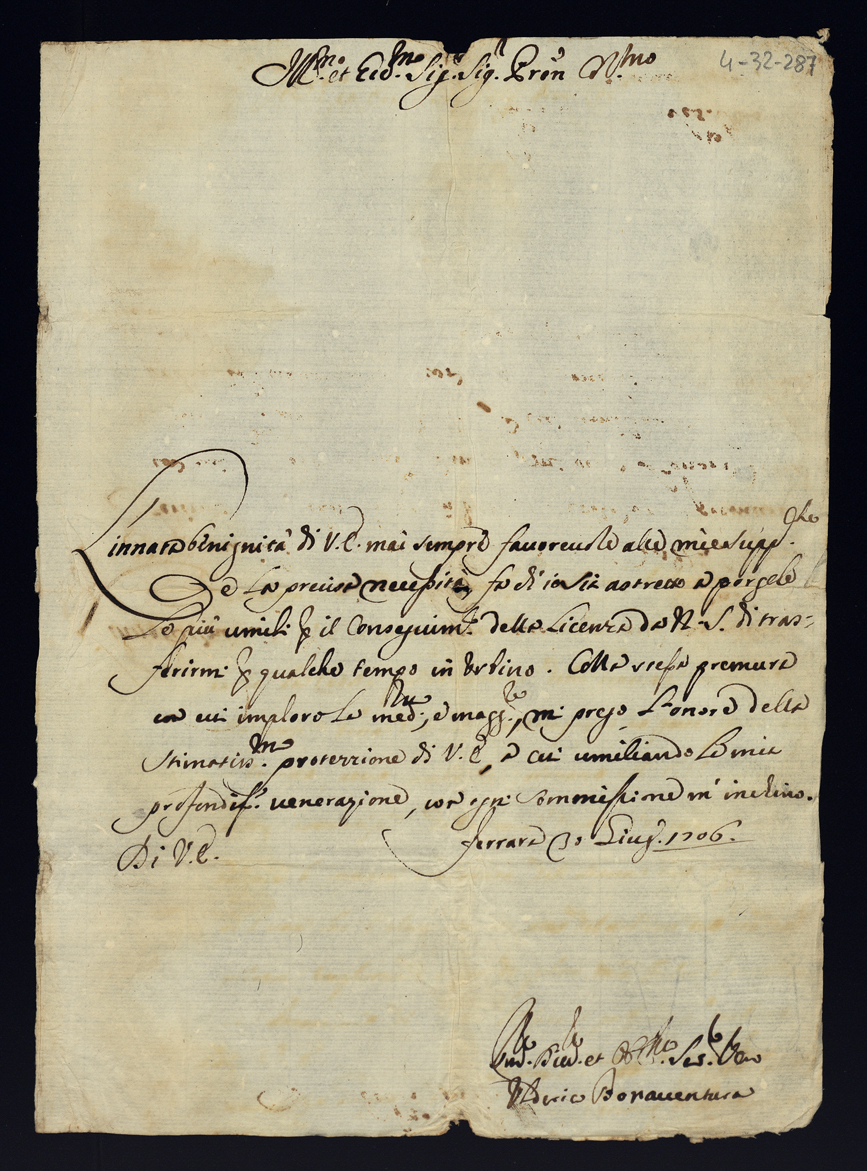 4-32-287
Ill.mo et Ecc.mo Sig.r Sig.r Pron
L'innata benignità di V.E. mai sempre favorevole alle mie supp.che
e la precisa necessità fa di io sia astretto a porgele
le più umili p il Conseguim.to della Licenza da N.S. di tras=
ferirmi p qualche tempo in Urbino. Colla stessa premura
con cui imploro la med.ma, e magg.re, mi prego l'onore della
stimatiss.ma protezzione di V.E., a cui umiliando la mia
profondiss.a venerazione, con ogni sommissione m'inchino.
Di V.E. Ferrara 30 Giug. 1706.
et Ser.
Bonaventura